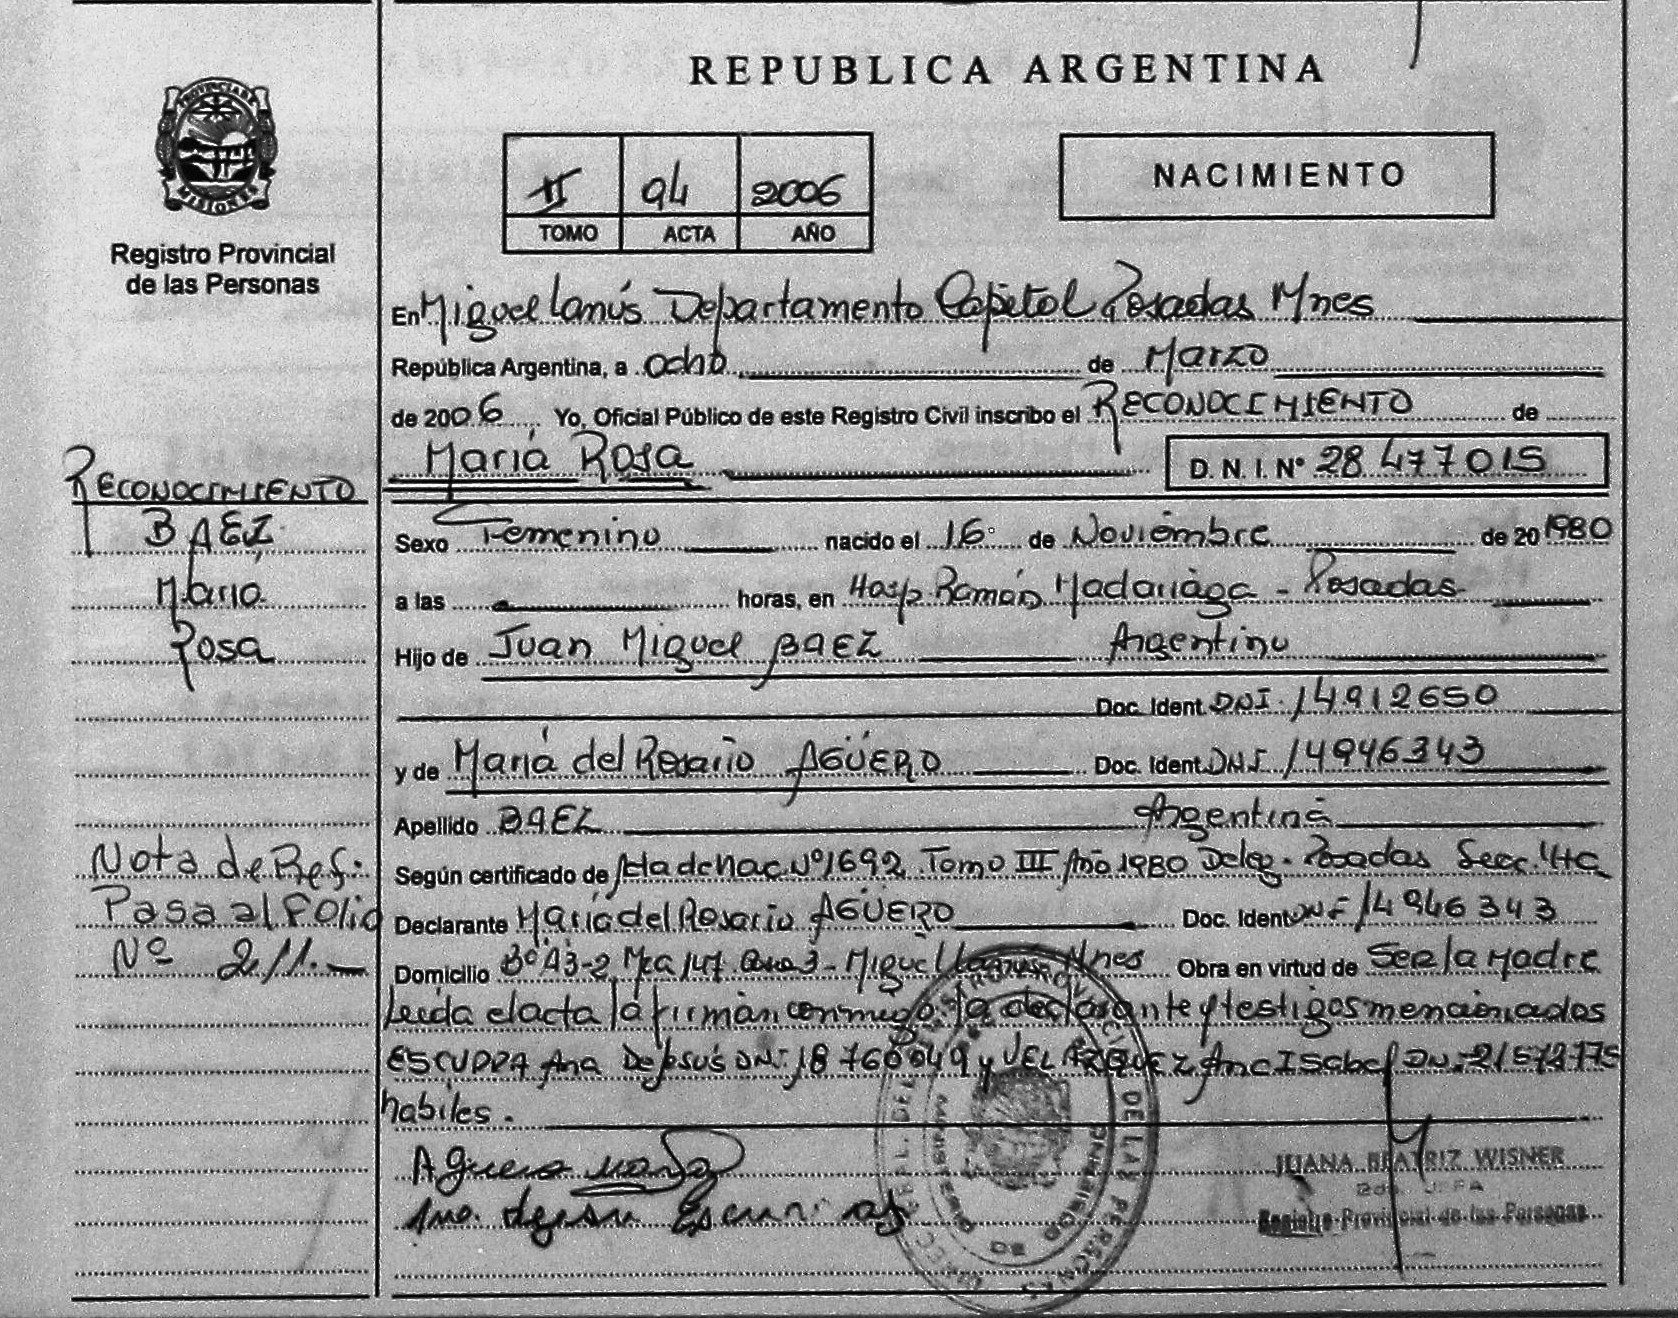 REPUBLICA ARGENTINA
PROVINCIA DE
MISIONES
Registro Provincial
de las Personas
II 94 2006
TOMO ACTA AÑO
NACIMIENTO
En Miguel Lanús Departamento Capital Posadas Mnes
República Argentina, a ocho de Marzo
de 2006 Yo, Oficial Público de este Registro Civil inscribo el RECONOCIMIENTO de
María Rosa D. N. I. N° 28.477.015
RECONOCIMIENTO
BAEZ
María
Rosa
Sexo Femenino nacido el 16 de Noviembre de 20 1980
a las horas, en Hosp Ramón Madariaga - Posadas
Hijo de Juan Miguel BAEZ Argentino
Doc. Ident. DNI. 14.912650
y de María del Rosario AGÜERO Doc. Ident. DNI 14946343
Apellido BAEZ Argentina
Según certificado de Acta de Nac Nº 1692 Tomo III Año 1980 Deleg. Posadas Secc. 4ta
Declarante María del Rosario AGÜERO Doc. Ident. DNI 14946343
Domicilio Bº A3-2 Mza 147 Casa 3 - Miguel Lanús Mnes Obra en virtud de Ser la Madre
Leída el acta la firman conmigo la declarante y testigos mencionados
Ana De Jesús DNI 18760049 y VELAZQUEZ Ana Isabel DNI
habiles.
Nota de Ref:
Pasa al Folio
Nº 211.
Aguero
Ana dejesu
JULIANA BEATRIZ WISNER
2da. JEFA
Registro Provincial de las Personas
DE LAS PERSONAS